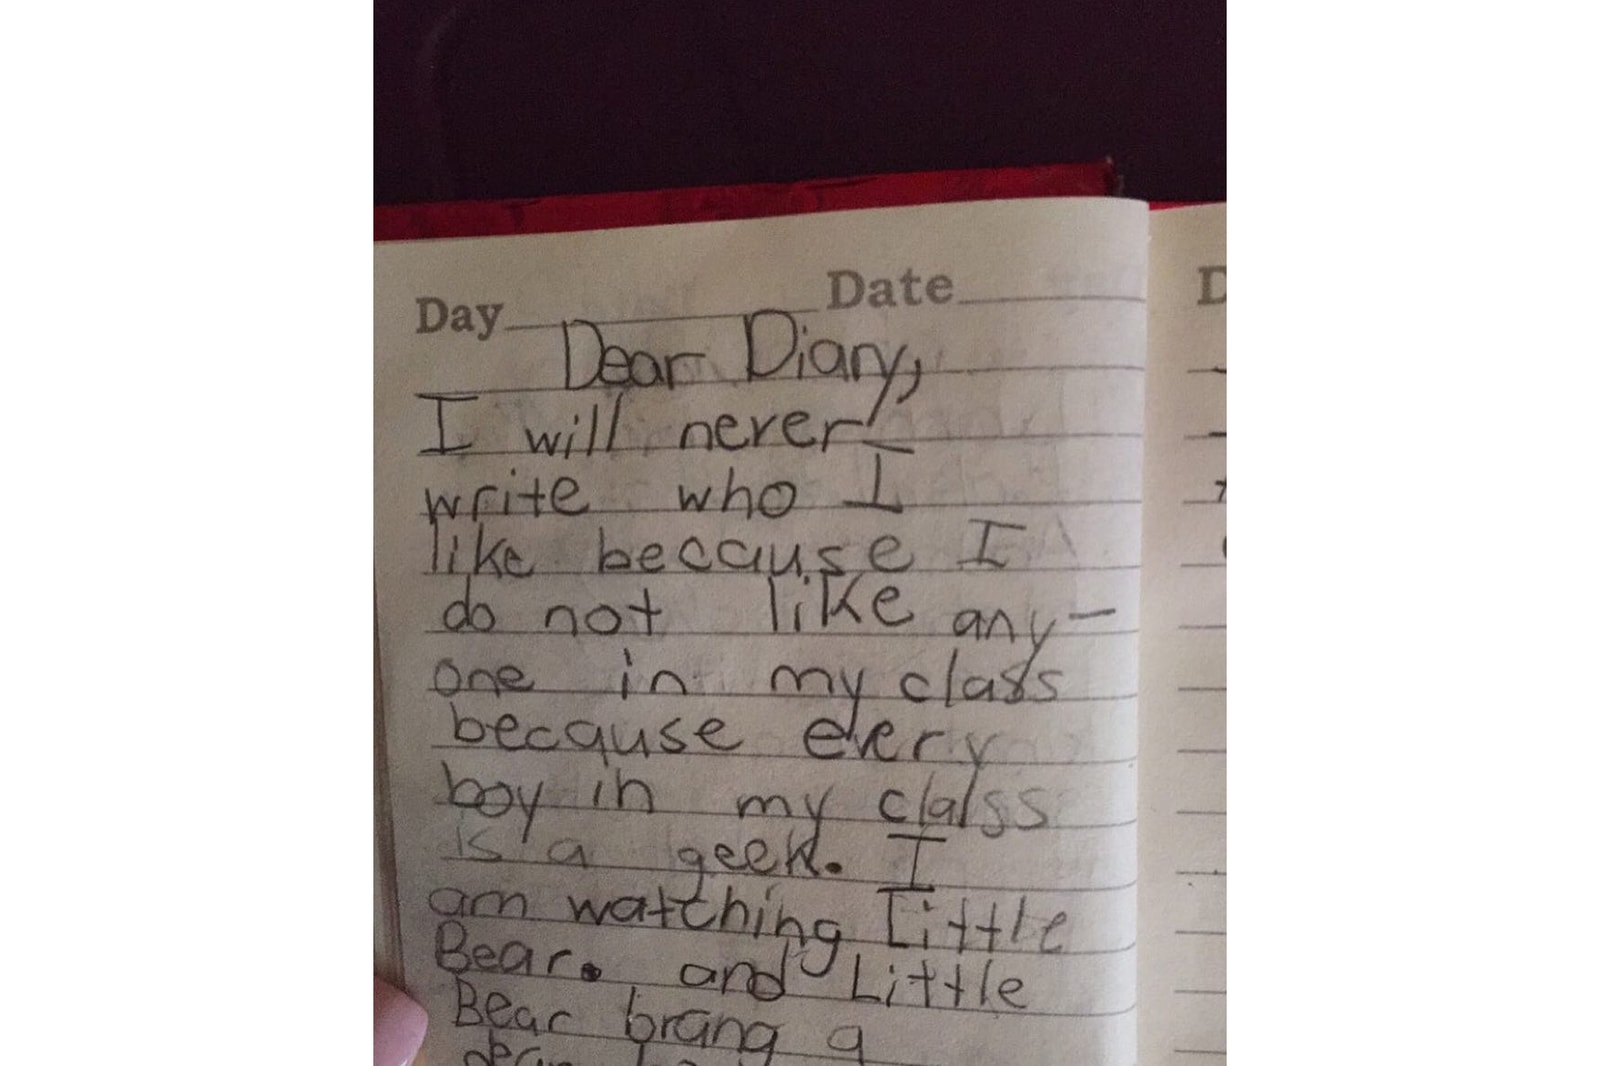 Day Date
Dear Diary,
I will never
write who I
like because I
do not like any-
one in my class
because every
boy in my class
is a geek. I
am watching Little
Bear. and Little
Bear brang a